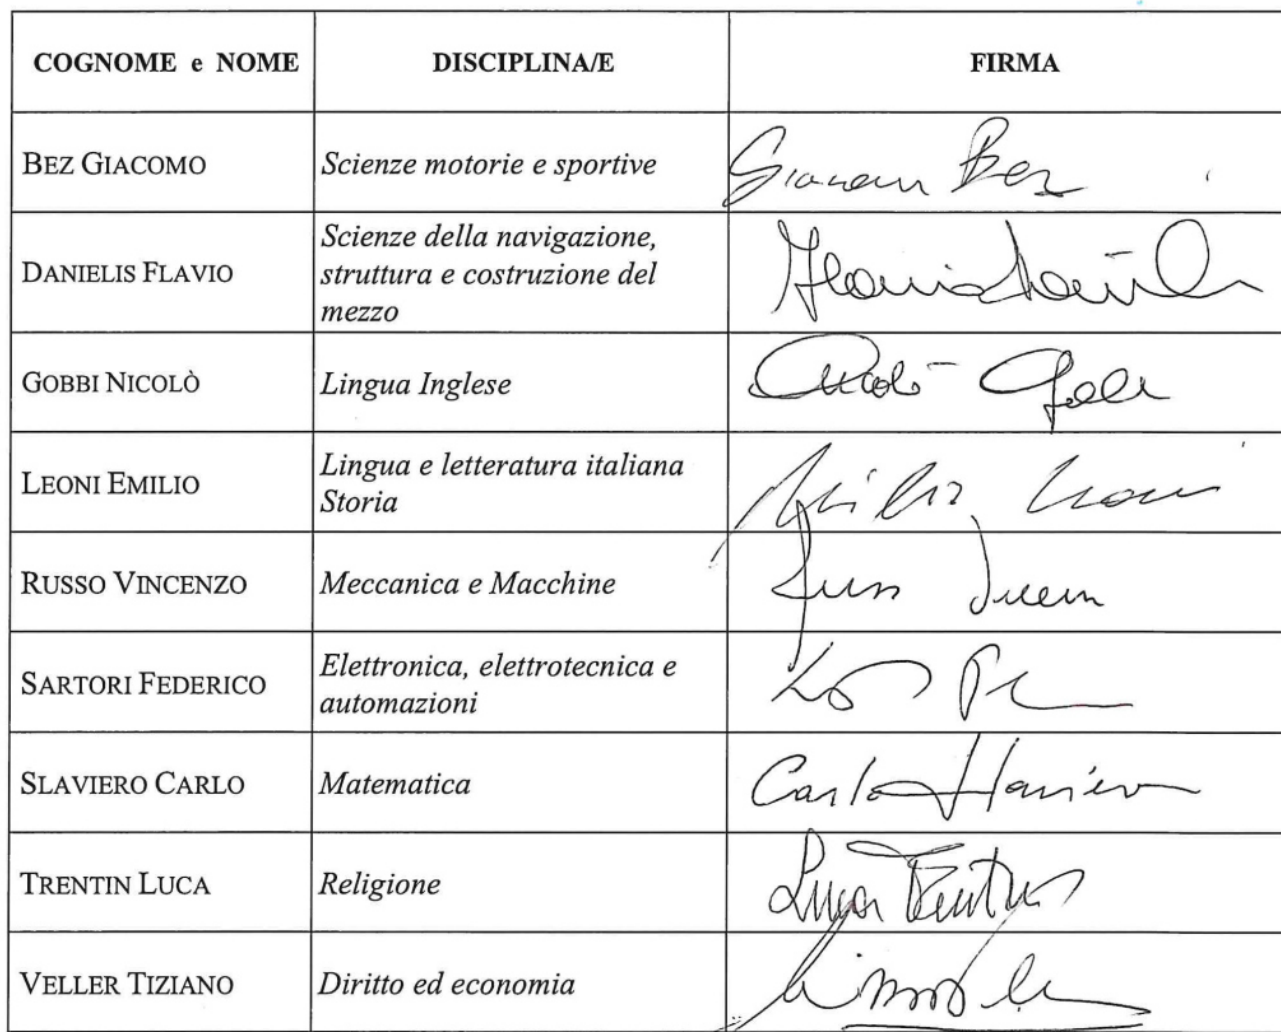 COGNOME e NOME DISCIPLINA/E FIRMA
BEZ GIACOMO Scienze motorie e sportive Giacomo Bez
DANIELIS FLAVIO Scienze della navigazione,
struttura e costruzione del
mezzo Flavio Danielis
GOBBI NICOLÒ Lingua Inglese Nicolò Gobbi
LEONI EMILIO Lingua e letteratura italiana
Storia Emilio Leoni
RUSSO VINCENZO Meccanica e Macchine Russo
SARTORI FEDERICO Elettronica, elettrotecnica e
automazioni
SLAVIERO CARLO Matematica Carlo Slaviero
TRENTIN LUCA Religione Luca Trentin
VELLER TIZIANO Diritto ed economia